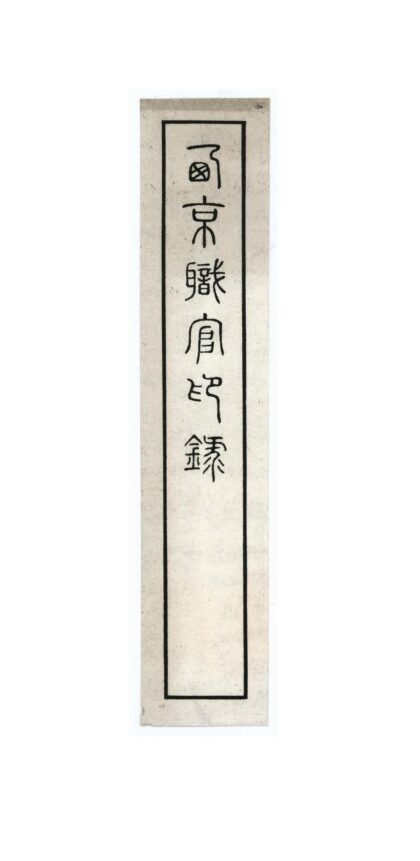 西京職官印録